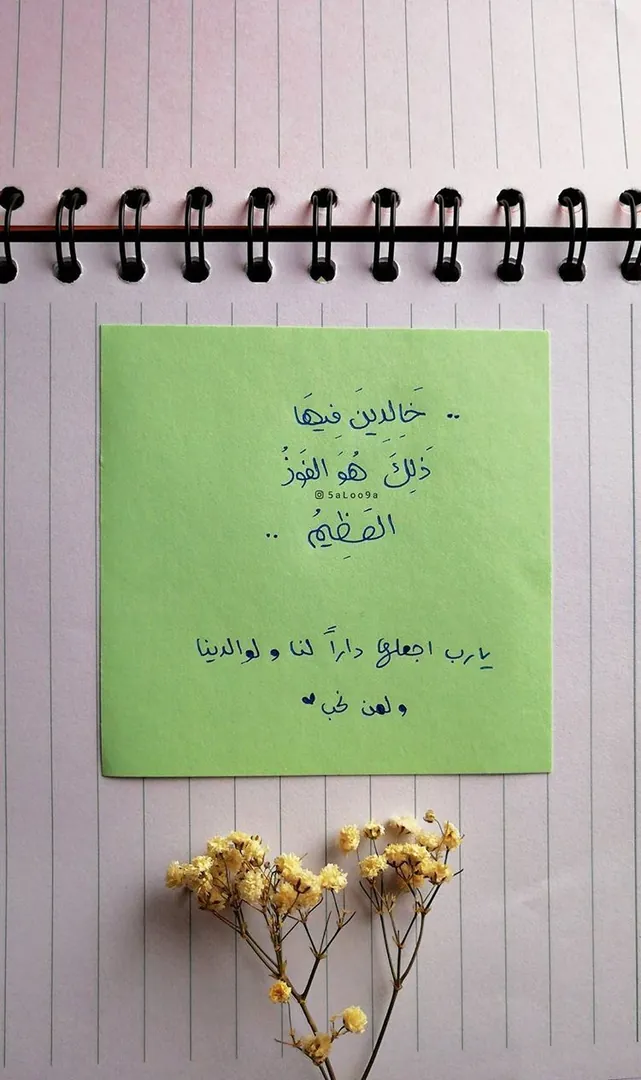 .. خَالِدِينَ فِيهَا
ذَلِكَ هُوَ الفَوْزُ
5aLoo9a
العَظِيمُ ..
يارب اجعلها داراً لنا و لوالدينا
و لمن نحب ♥